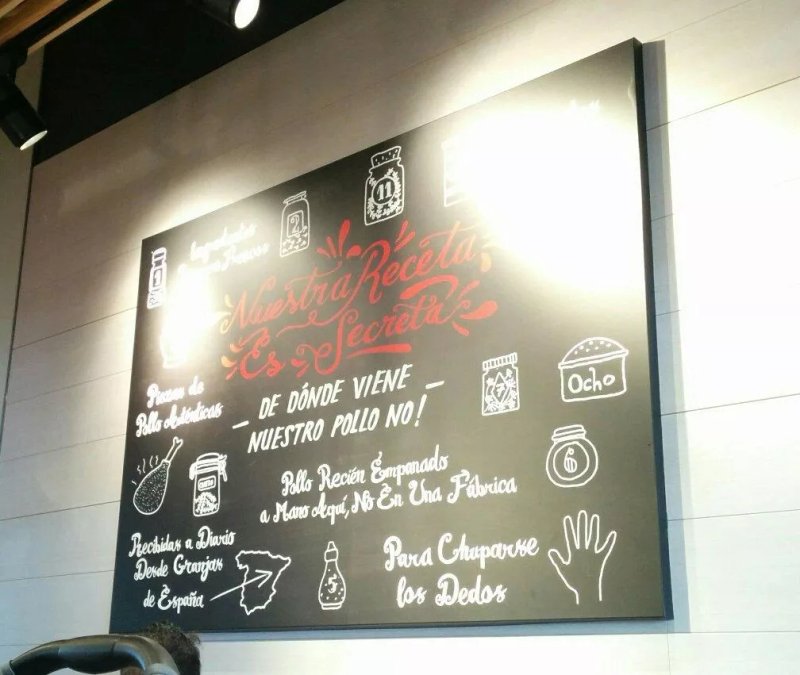 1
Ingredientes
Frescos
2
11
Nuestra Receta
Es Secreta
DE DÓNDE VIENE
NUESTRO POLLO NO!
Piezas de
Pollo Auténticas
7
Ocho
6
Pollo Recién Empanado
a Mano Aquí, No En Una Fábrica
Recibidas a Diario
Desde Granjas
de España
5
Para Chuparse
los Dedos